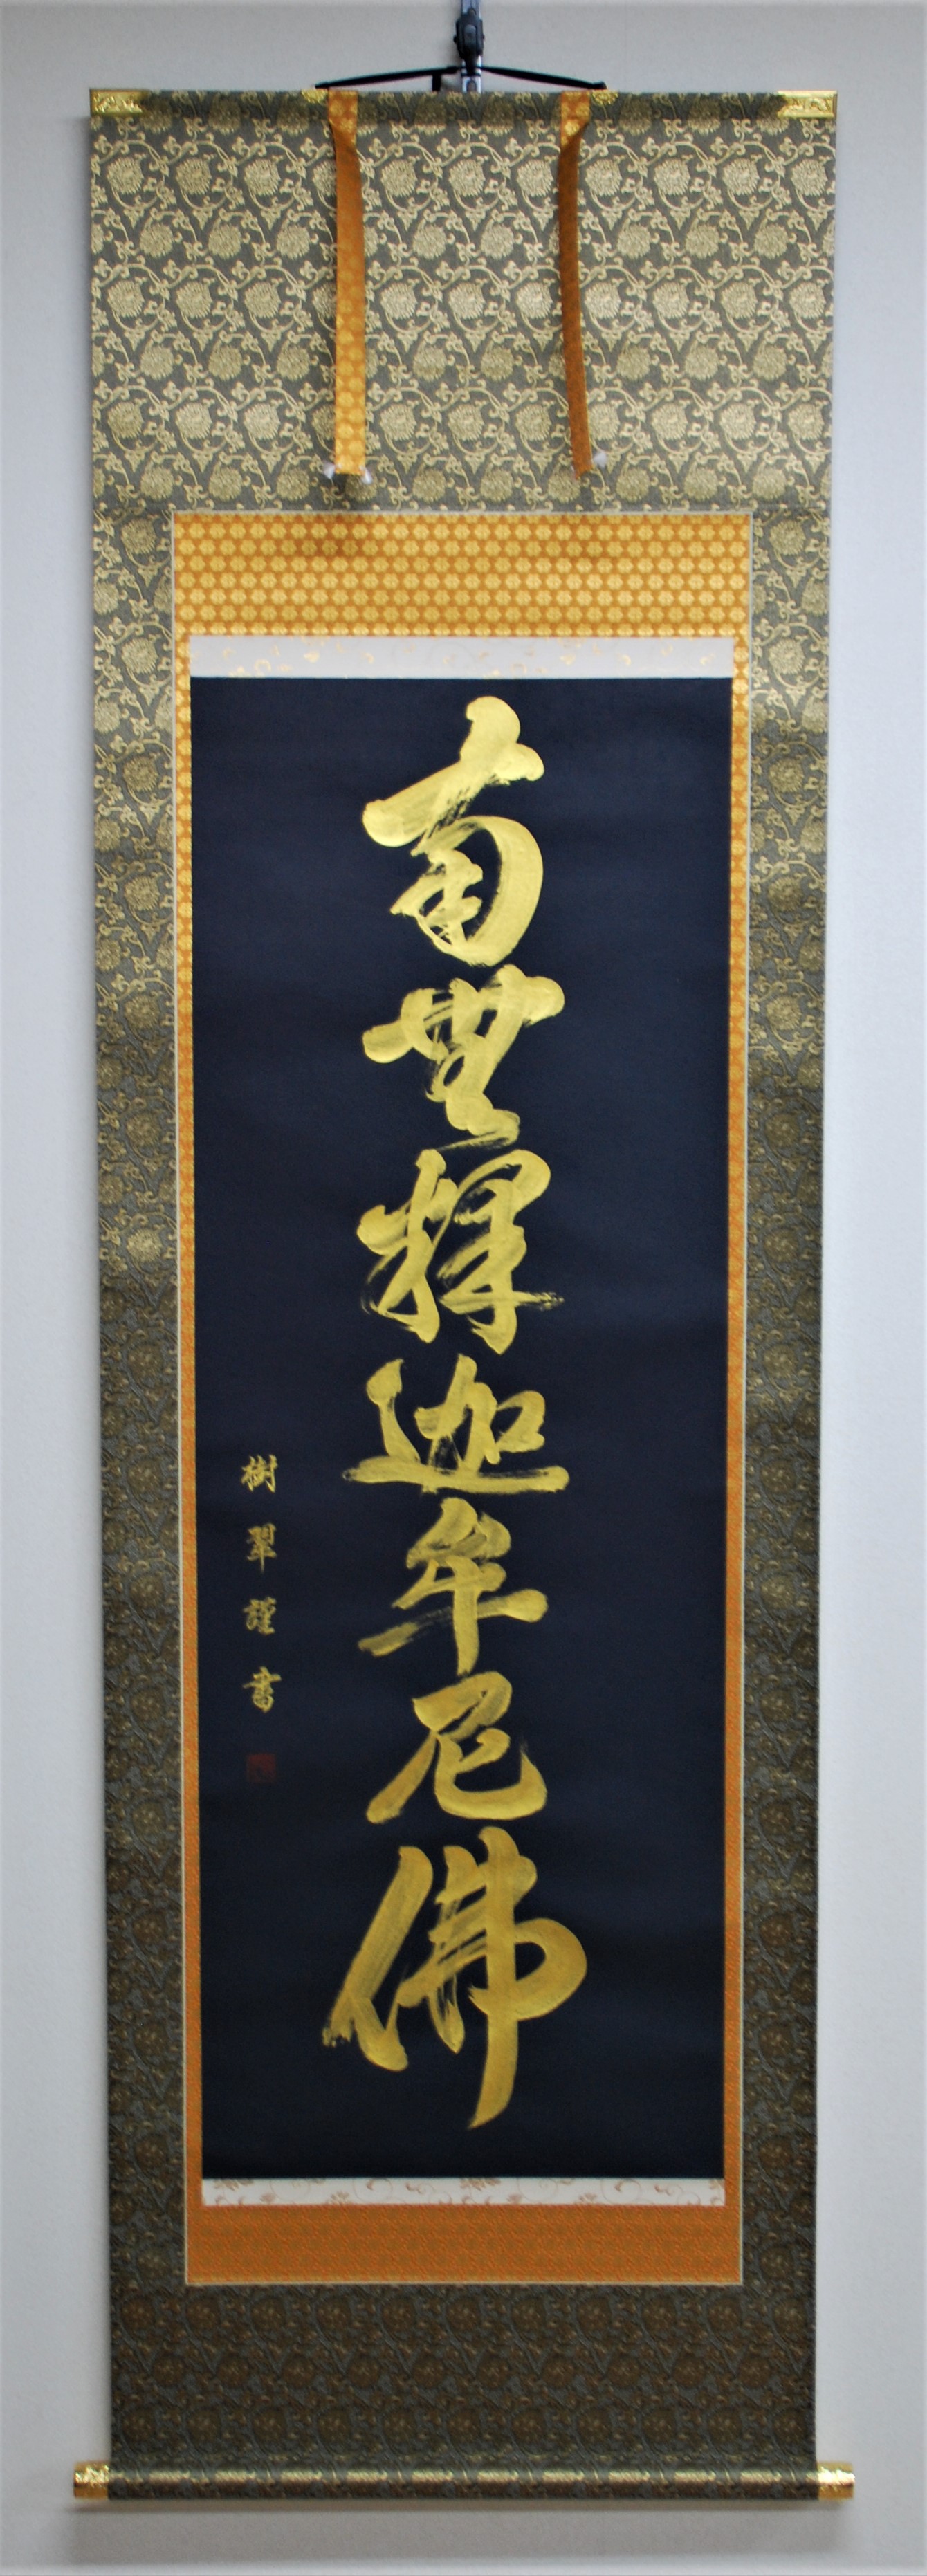 南無釋迦牟尼佛
樹翠謹書